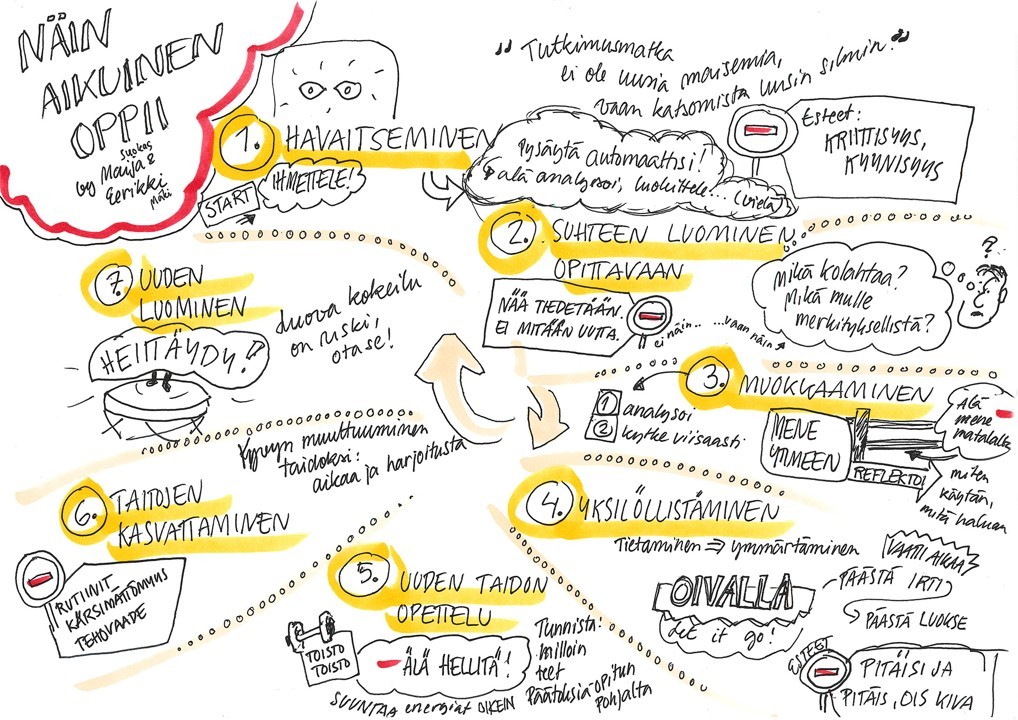 NÄIN
AIKUINEN
OPPII
by Suokas
Maija &
Eerikki
Mäki
" Tutkimusmatka
ei ole uusia maisemia,
vaan katsomista uusin silmin."
1. HAVAITSEMINEN
START
IHMETTELE!
Pysäytä automaattisi!
älä analysoi, luokittele... (vielä)
Esteet:
KRIITTISYYS,
KYYNISYYS
2. SUHTEEN LUOMINEN
OPITTAVAAN
NÄÄ TIEDETÄÄN.
EI MITÄÄN UUTTA.
ei näin.. ...vaan näin
Mikä kolahtaa?
Mikä mulle
merkityksellistä?
?
3. MUOKKAAMINEN
1 analysoi
2 kytke viisaasti
MENE
YTIMEEN
REFLEKTOI
ÄLÄ
mene
matalalta
miten
käytän,
mitä haluan
4. YKSILÖLLISTÄMINEN
Tietäminen ⇒ ymmärtäminen
OIVALLA
Let it go!
VAATII AIKAA
PÄÄSTÄ IRTI
PÄÄSTÄ LUOKSE
ESTEET
PITÄISI JA
PITÄIS, OIS KIVA
5. UUDEN TAIDON
OPETTELU
TOISTO
TOISTO
ÄLÄ HELLITÄ!
SUUNTAA energiat OIKEIN
Tunnista:
milloin
teet
päätöksiä opitun
pohjalta
6. TAITOJEN
KASVATTAMINEN
Kyvyn muuttuminen
taidoksi:
aikaa ja harjoitusta
RUTIINIT
KÄRSIMÄTTÖMYYS
TEHOVAADE
7. UUDEN
LUOMINEN
HEITTÄYDY!
Luova kokeilu
on riski,
ota se!